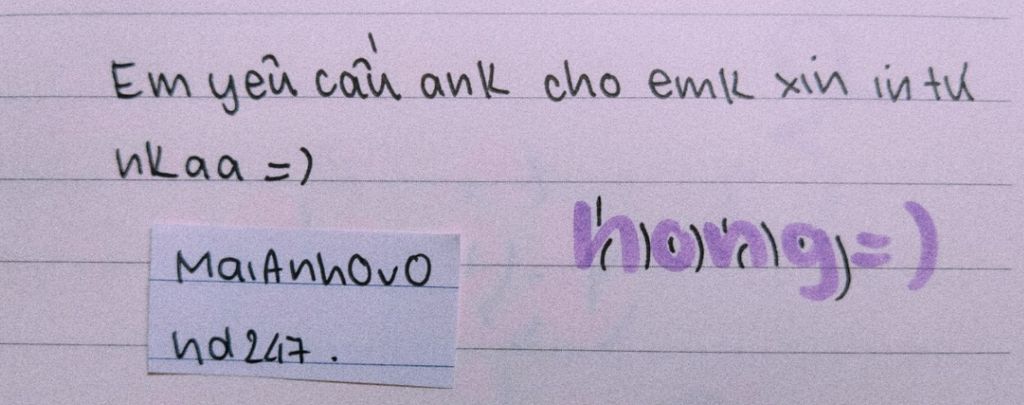 Em yêu cầu ank cho emk xin in tư
nkaa =)
hong=)
MaiAnhOvO
nd247.